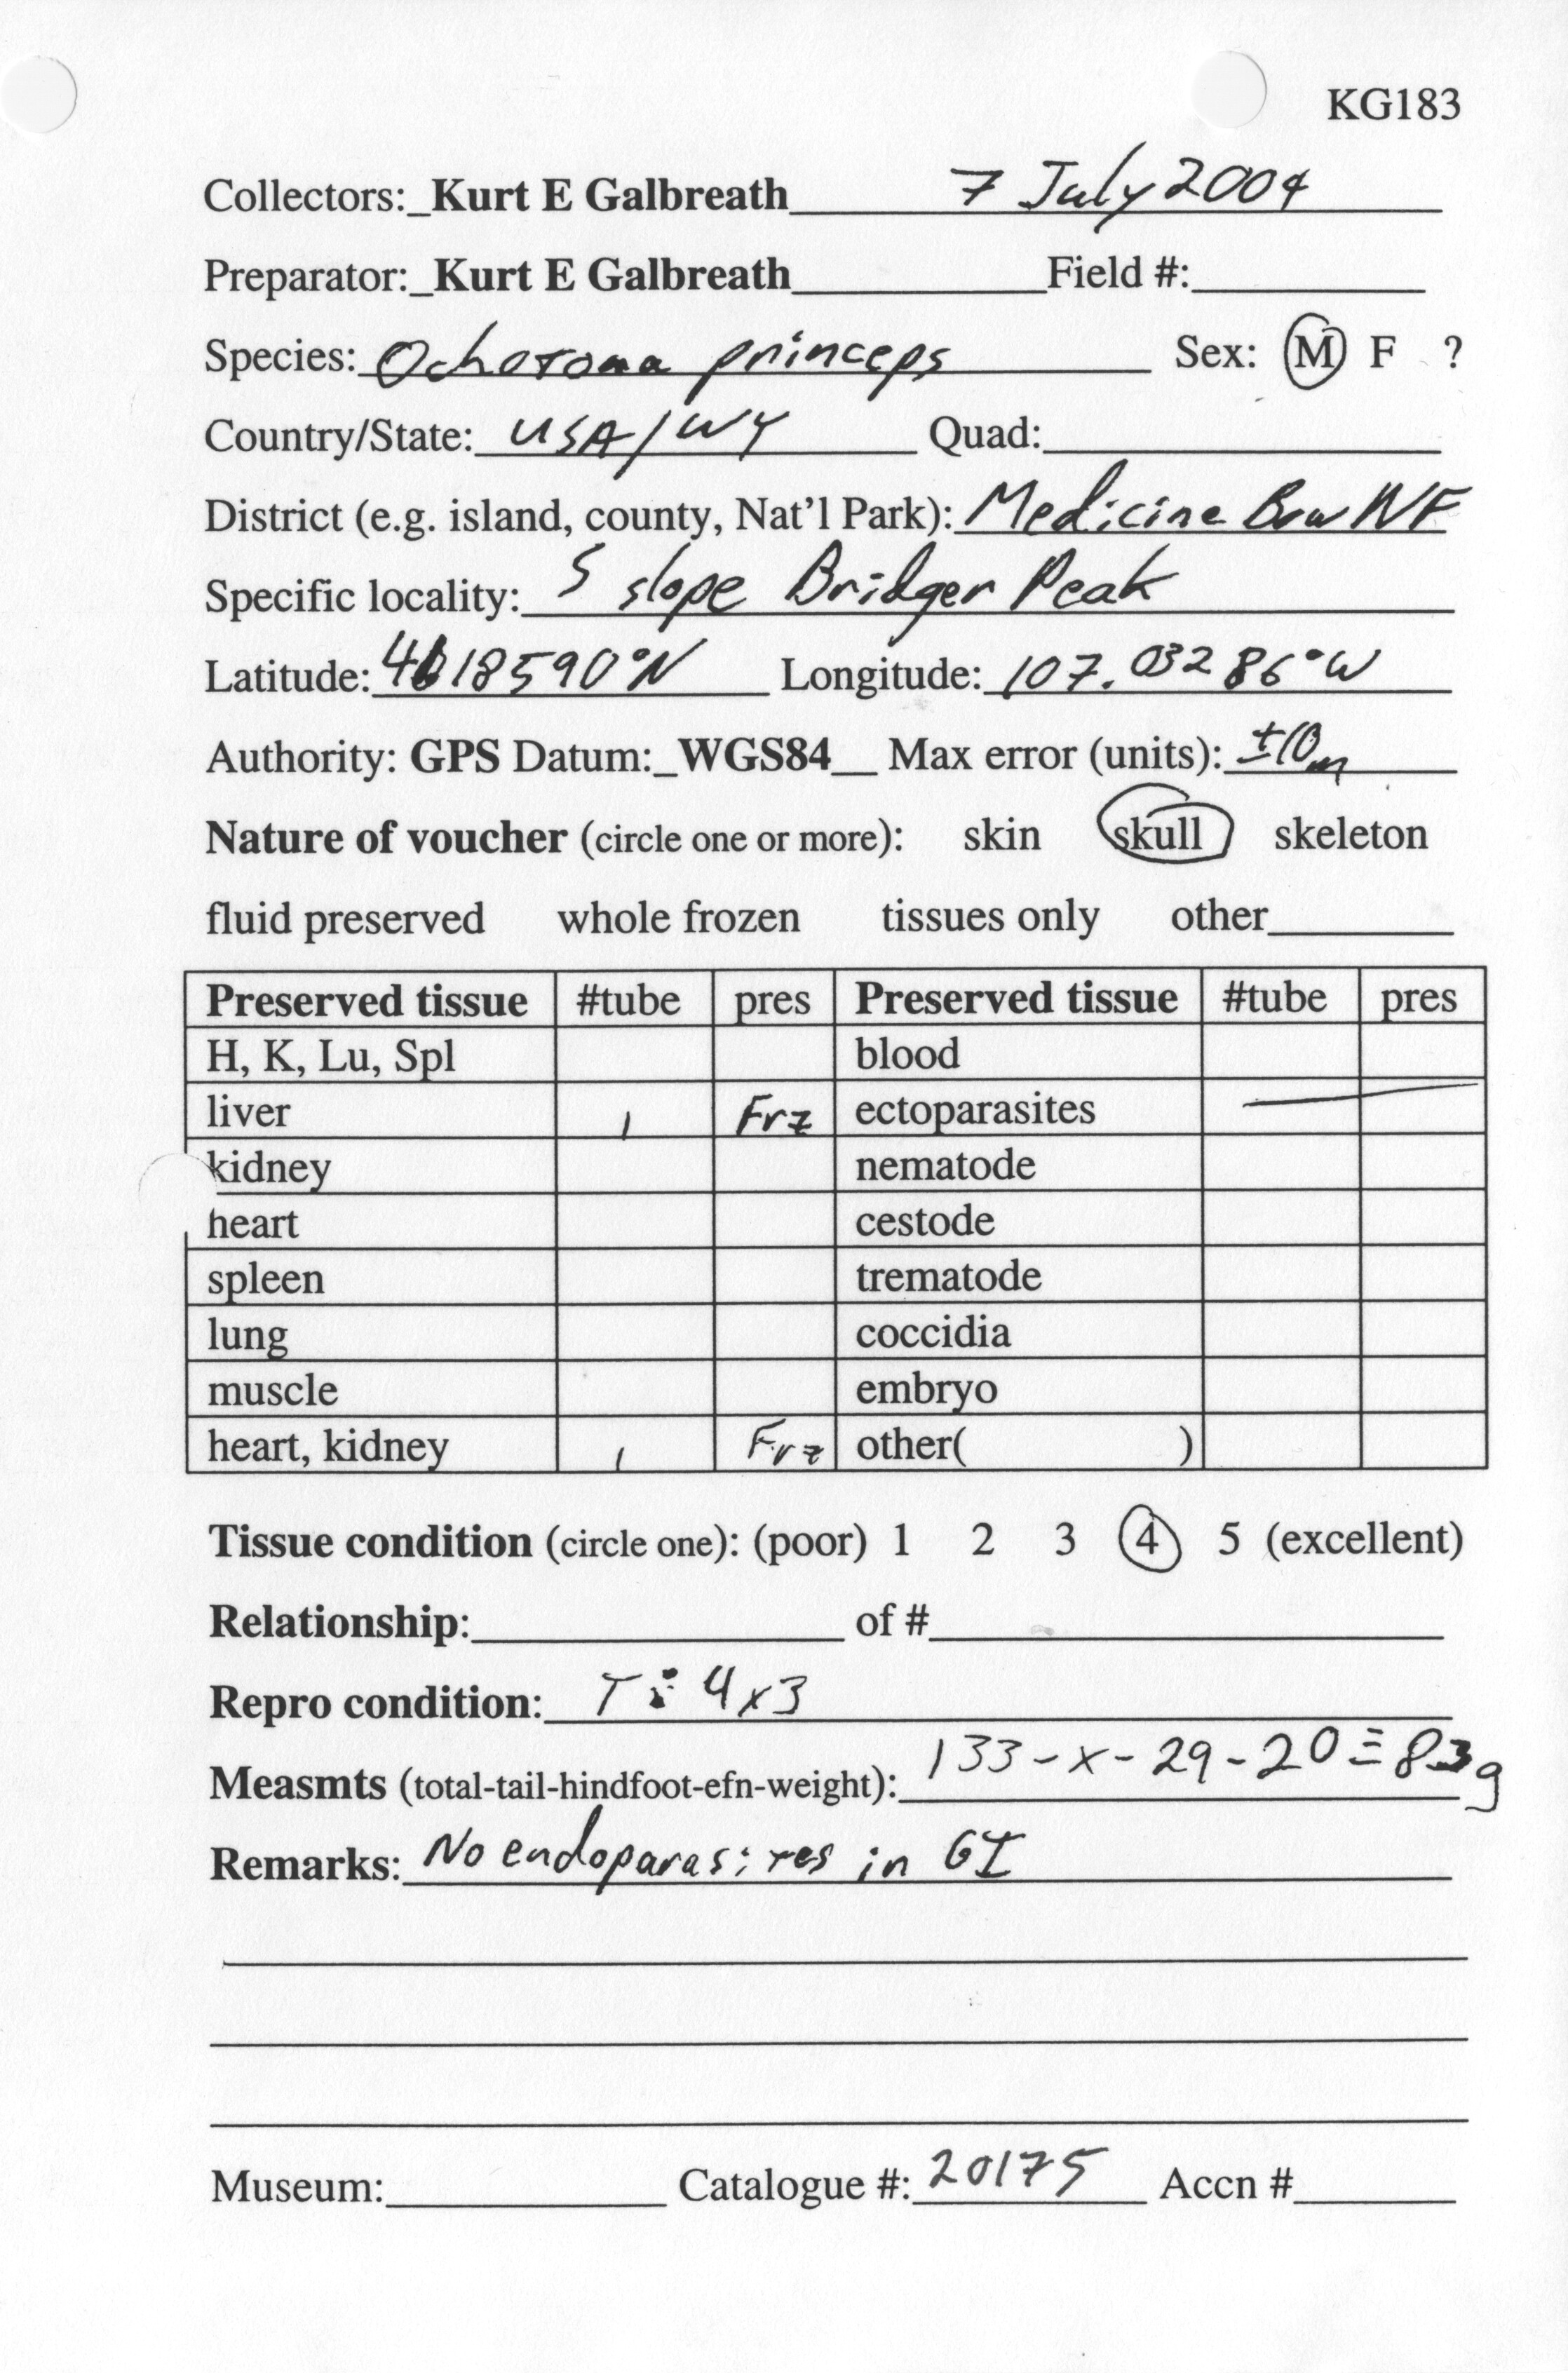 KG183
Collectors:_Kurt E Galbreath 7 July 2004
Preparator:_Kurt E Galbreath Field #:
Species: Ochotona princeps Sex: M F ?
Country/State: USA/WY Quad:
District (e.g. island, county, Nat'l Park): Medicine Bow NF
Specific locality: S slope Bridger Peak
Latitude: Longitude: 107.03286°W
Authority: GPS Datum:_WGS84__ Max error (units): ±10m
Nature of voucher (circle one or more): skin skull skeleton
fluid preserved whole frozen tissues only other
Preserved tissue #tube pres Preserved tissue #tube pres
H, K, Lu, Spl blood
liver 1 Frz ectoparasites —
kidney nematode
heart cestode
spleen trematode
lung coccidia
muscle embryo
heart, kidney 1 Frz other( )
Tissue condition (circle one): (poor) 1 2 3 4 5 (excellent)
Relationship: of #
Repro condition: T: 4x3
Measmts (total-tail-hindfoot-efn-weight): 133-x-29-20≡83g
Remarks: No endoparasites in GI
Museum: Catalogue #: 20175 Accn #